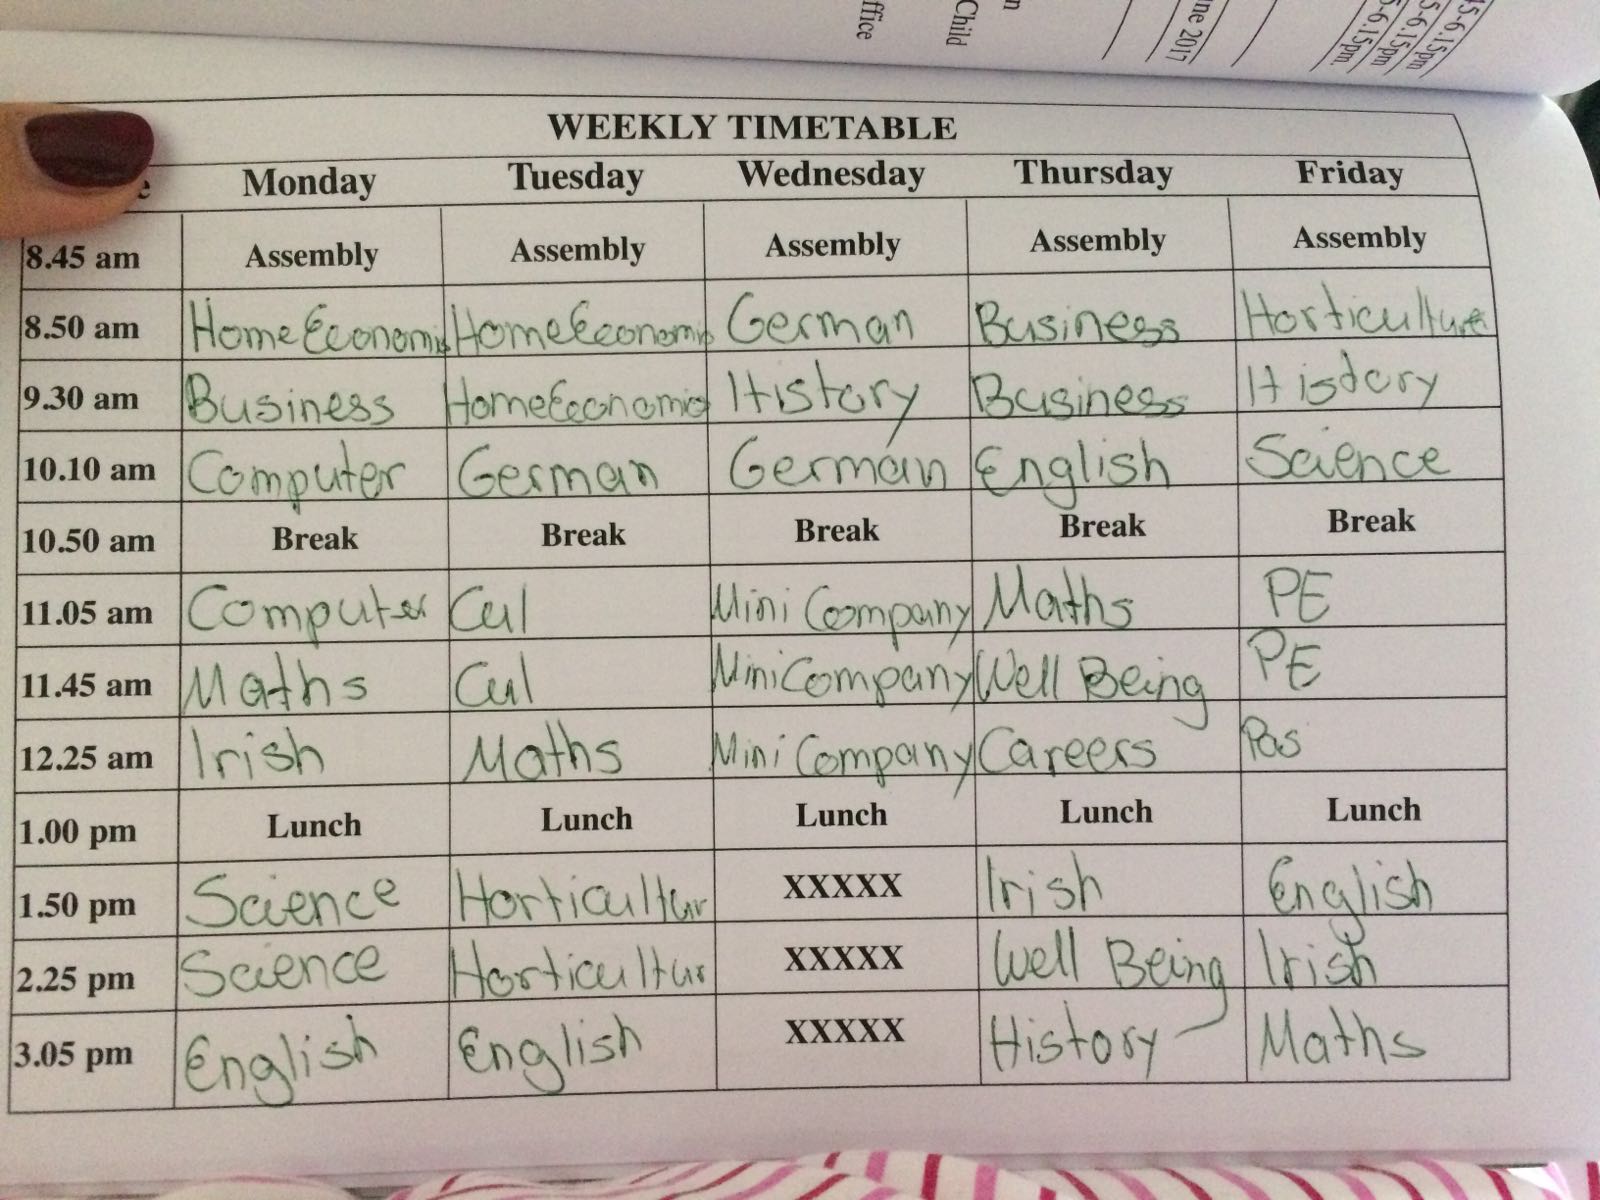 ffice
Child
n
ne 2017
5-6.15pm.
5-6.15pm
45-6.15pm
WEEKLY TIMETABLE
e Monday Tuesday Wednesday Thursday Friday
8.45 am Assembly Assembly Assembly Assembly Assembly
8.50 am Home Economis Home Economis German Business Horticulture
9.30 am Business Home Economis History Business History
10.10 am Computer German German English Science
10.50 am Break Break Break Break Break
11.05 am Computer Cul Mini Company Maths PE
11.45 am Maths Cul Mini Company Well Being PE
12.25 am Irish Maths Mini Company Careers Pas
1.00 pm Lunch Lunch Lunch Lunch Lunch
1.50 pm Science Horticultur XXXXX Irish English
2.25 pm Science Horticultur XXXXX Well Being Irish
3.05 pm English English XXXXX History Maths